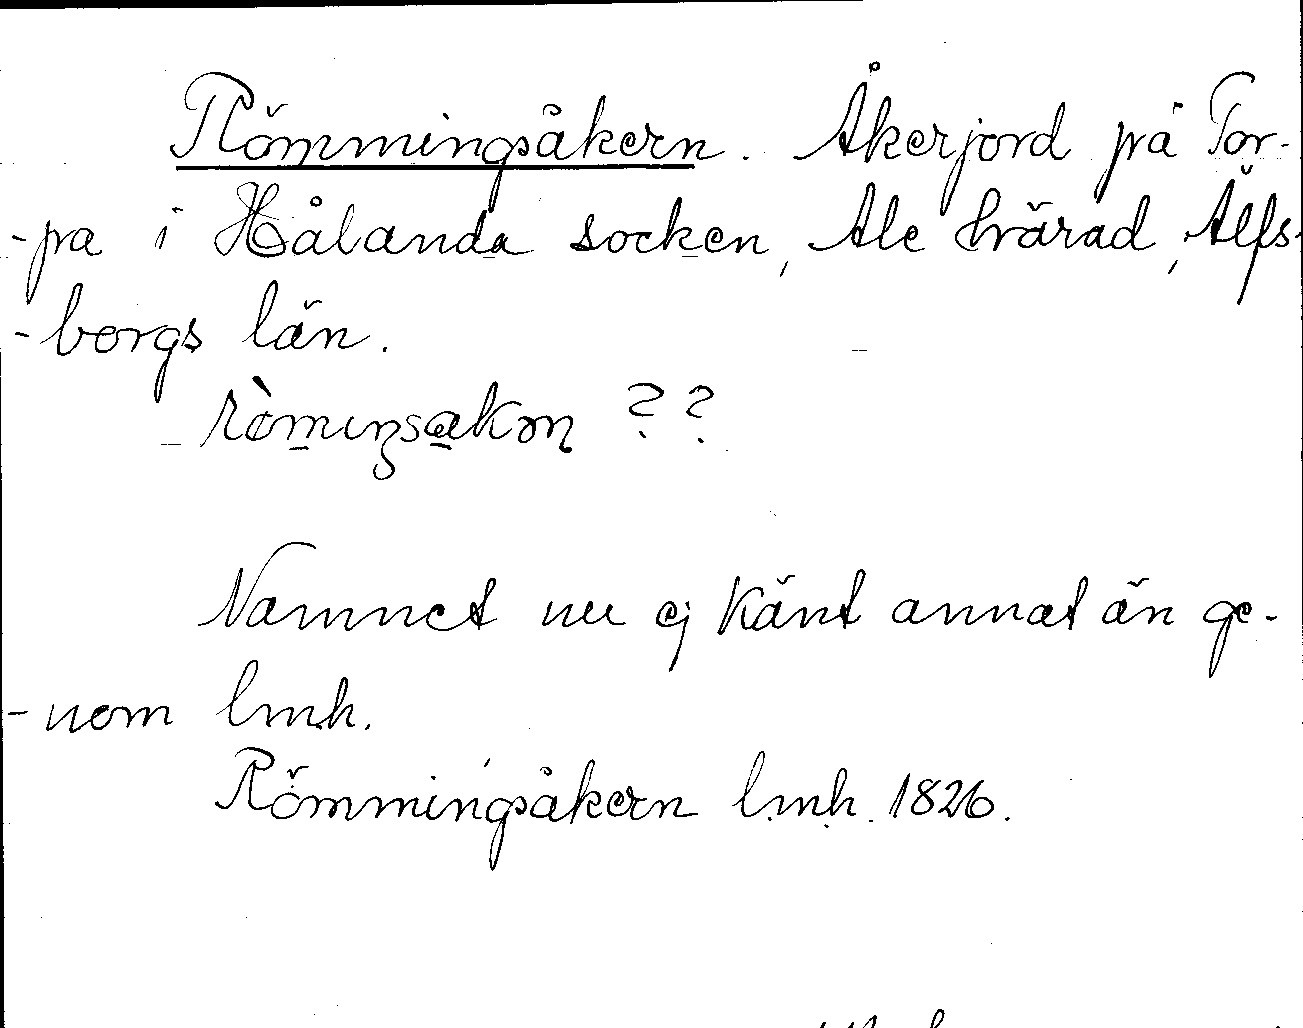 Römmingsåkern. Åkerjord på Tor-
-pa i Hålanda socken, Ale härad, Älfs-
-borgs län.
ròmiŋsakən ??
Namnet nu ej känt annat än ge-
-nom lmh.
Römmingsåkern lmh. 1826.